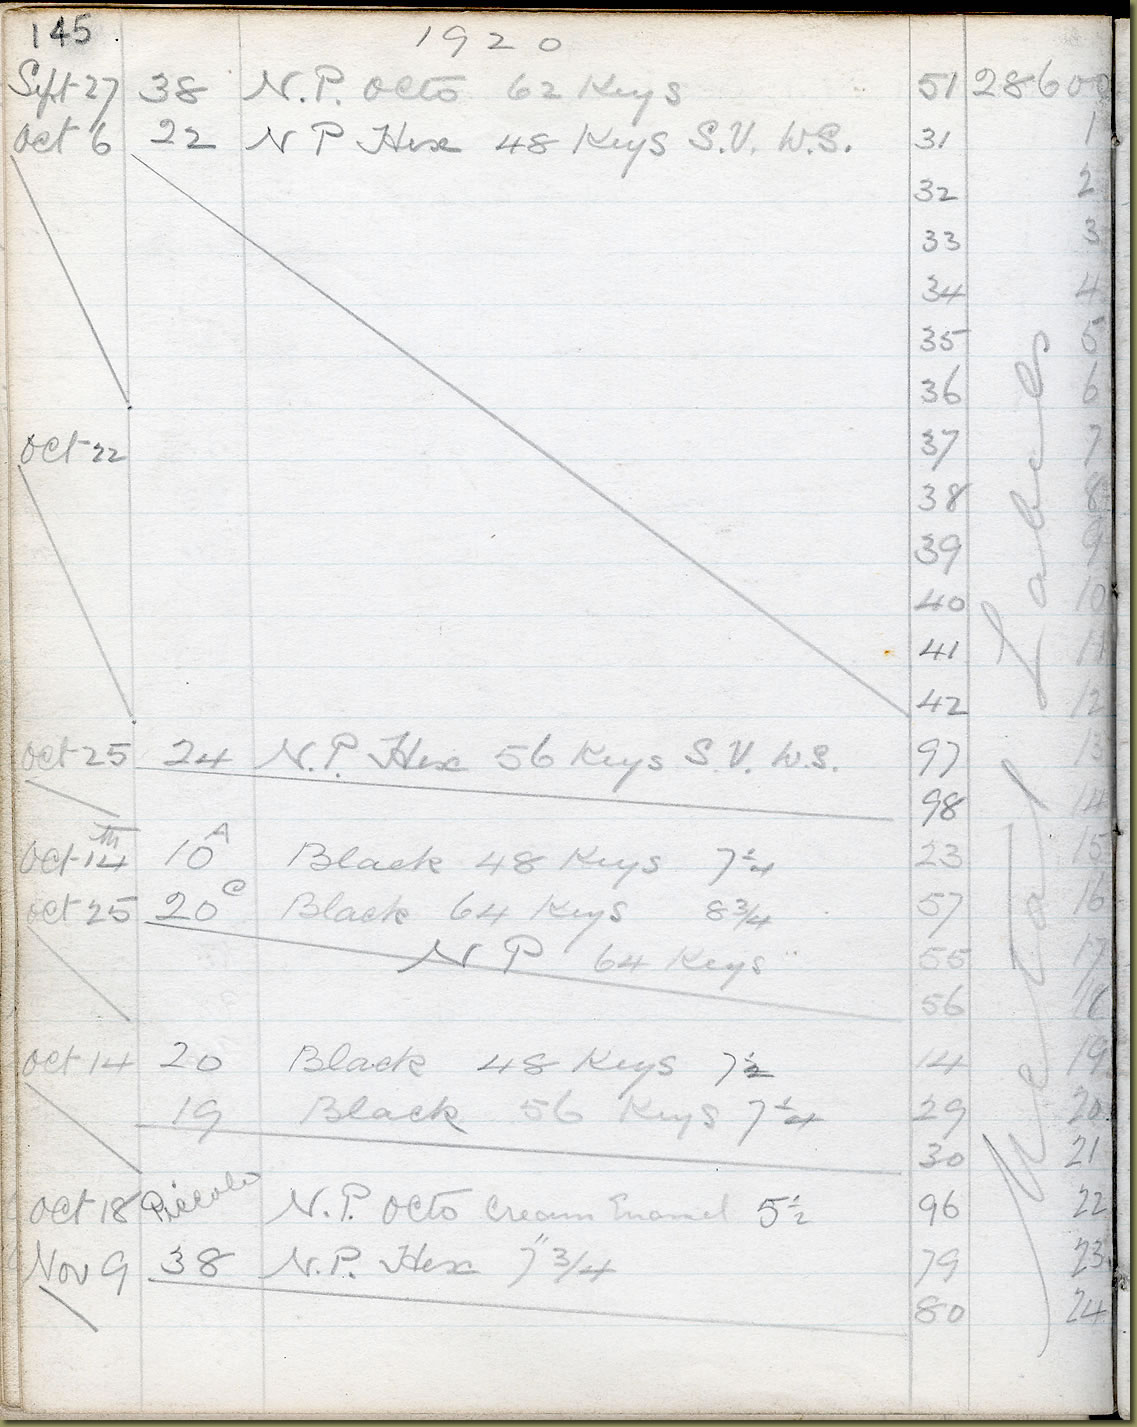 145
1920
Sept 27 38 N.P. Octo 62 Keys 51 28600
Oct 6 22 N P Hex 48 Keys S.V. W.S. 31 1
32 2
33 3
34 4
35 5
36 6
37 7
Oct 22
38 8
39 9
40 10
41 11
42 12
Oct 25 24 N.P. Hex 56 Keys S.V. W.S. 97 13
98 14
Oct 14th 10A Black 48 Keys 7¼ 23 15
Oct 25 20C Black 64 Keys 8¾ 57 16
N P 64 Keys " 55 17
56 18
Oct 14 20 Black 48 Keys 7½ 14 19
19 Black 56 Keys 7¼ 29 20
30 21
Oct 18 Piccolo N.P. Octo Cream Enamel 5½ 96 22
Nov 9 38 N.P. Hex 7"¾ 79 23
80 24
Metal Labels